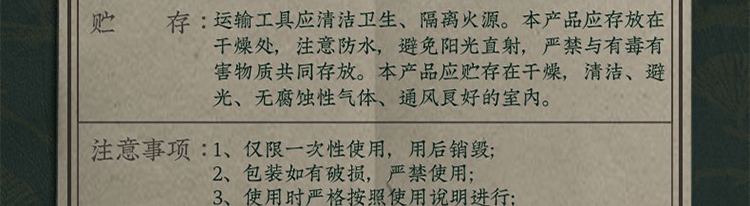 贮　　存：运输工具应清洁卫生、隔离火源。本产品应存放在
干燥处，注意防水，避免阳光直射，严禁与有毒有
害物质共同存放。本产品应贮存在干燥，清洁、避
光、无腐蚀性气体、通风良好的室内。
注意事项：1、仅限一次性使用，用后销毁；
2、包装如有破损，严禁使用；
3、使用时严格按照使用说明进行；